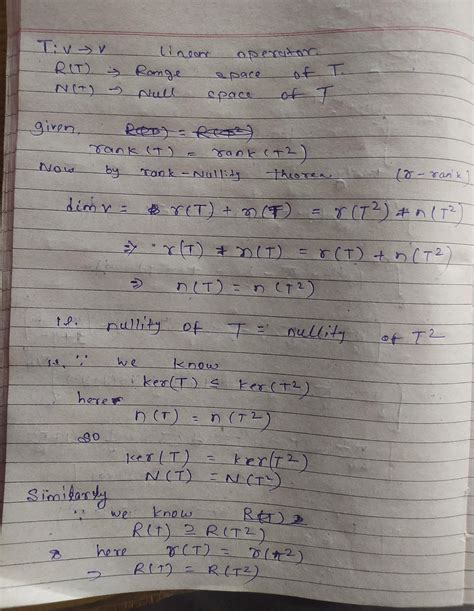 T: V → V linear operator.
R(T) → Range space of T.
N(T) → Null space of T
given, R(T) = R(T²)
rank(T) = rank(T²)
Now by rank-Nullity Theorem (r-rank)
dim V = r(T) + n(T) = r(T²) + n(T²)
⇒ r(T) + n(T) = r(T) + n(T²)
⇒ n(T) = n(T²)
i.e. nullity of T = nullity of T²
∵ we know
ker(T) ⊆ ker(T²)
here
n(T) = n(T²)
so
ker(T) = ker(T²)
N(T) = N(T²)
Similarly
∵ we know R(T)
R(T) ⊇ R(T²)
here r(T) = r(T²)
⇒ R(T) = R(T²)